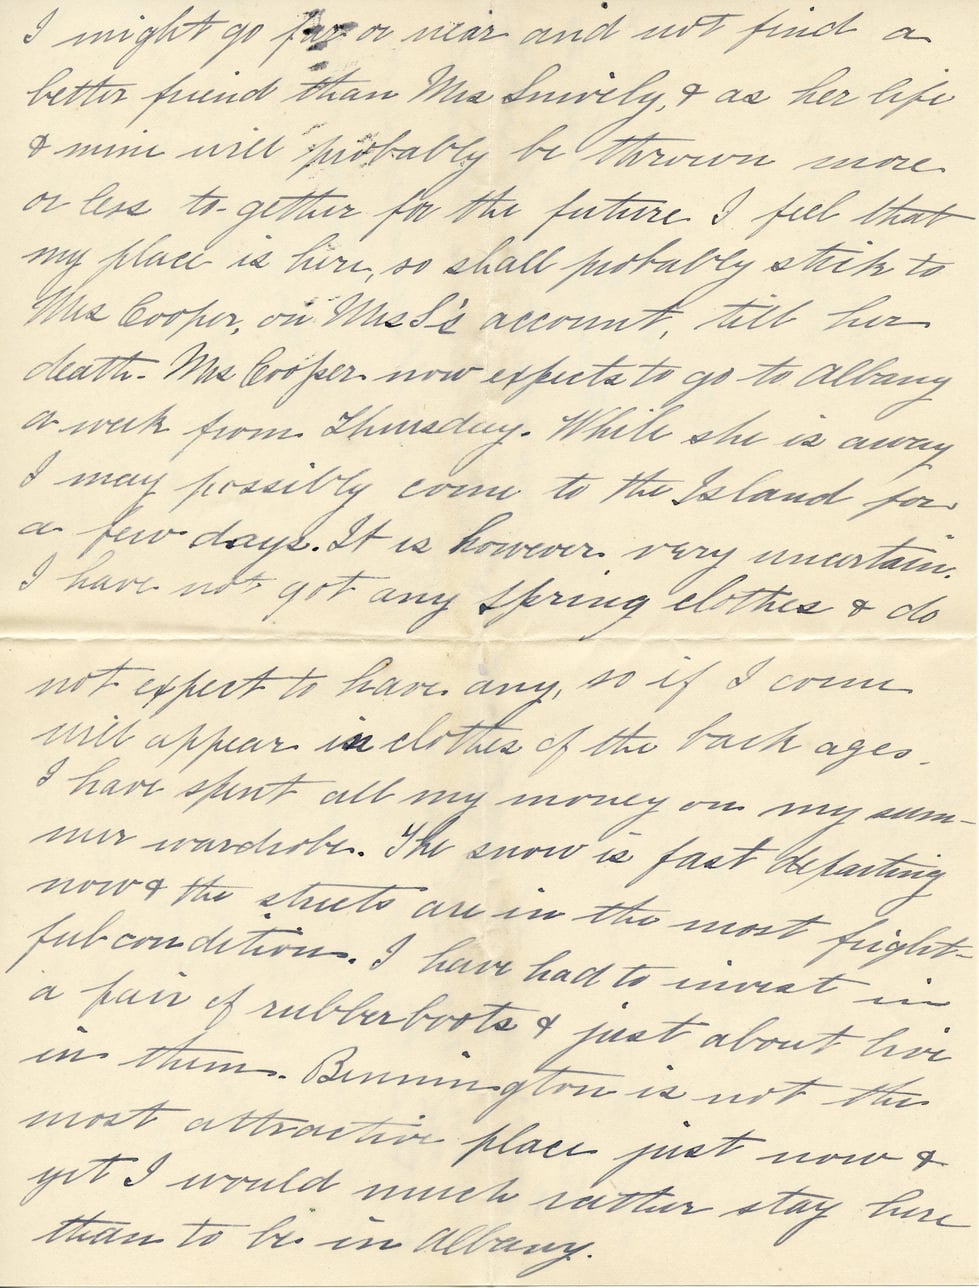 I might go far or near and not find a
better friend than Mrs Snively, & as her life
& mine will probably be thrown more
or less to-gether for the future I feel that
my place is here, so shall probably stick to
Mrs Cooper, on Mrs S's account, till her
death. Mrs Cooper now expects to go to Albany
a week from Thursday. While she is away
I may possibly come to the Island for
a few days. It is however very uncertain.
I have not got any Spring clothes & do
not expect to have any, so if I come
will appear in clothes of the back ages.
I have spent all my money on my sum-
mer wardrobe. The snow is fast departing
now & the streets are in the most fright-
ful condition. I have had to invest in
a pair of rubber boots & just about live
in them. Bennington is not the
most attractive place just now &
yet I would much rather stay here
than to be in Albany.